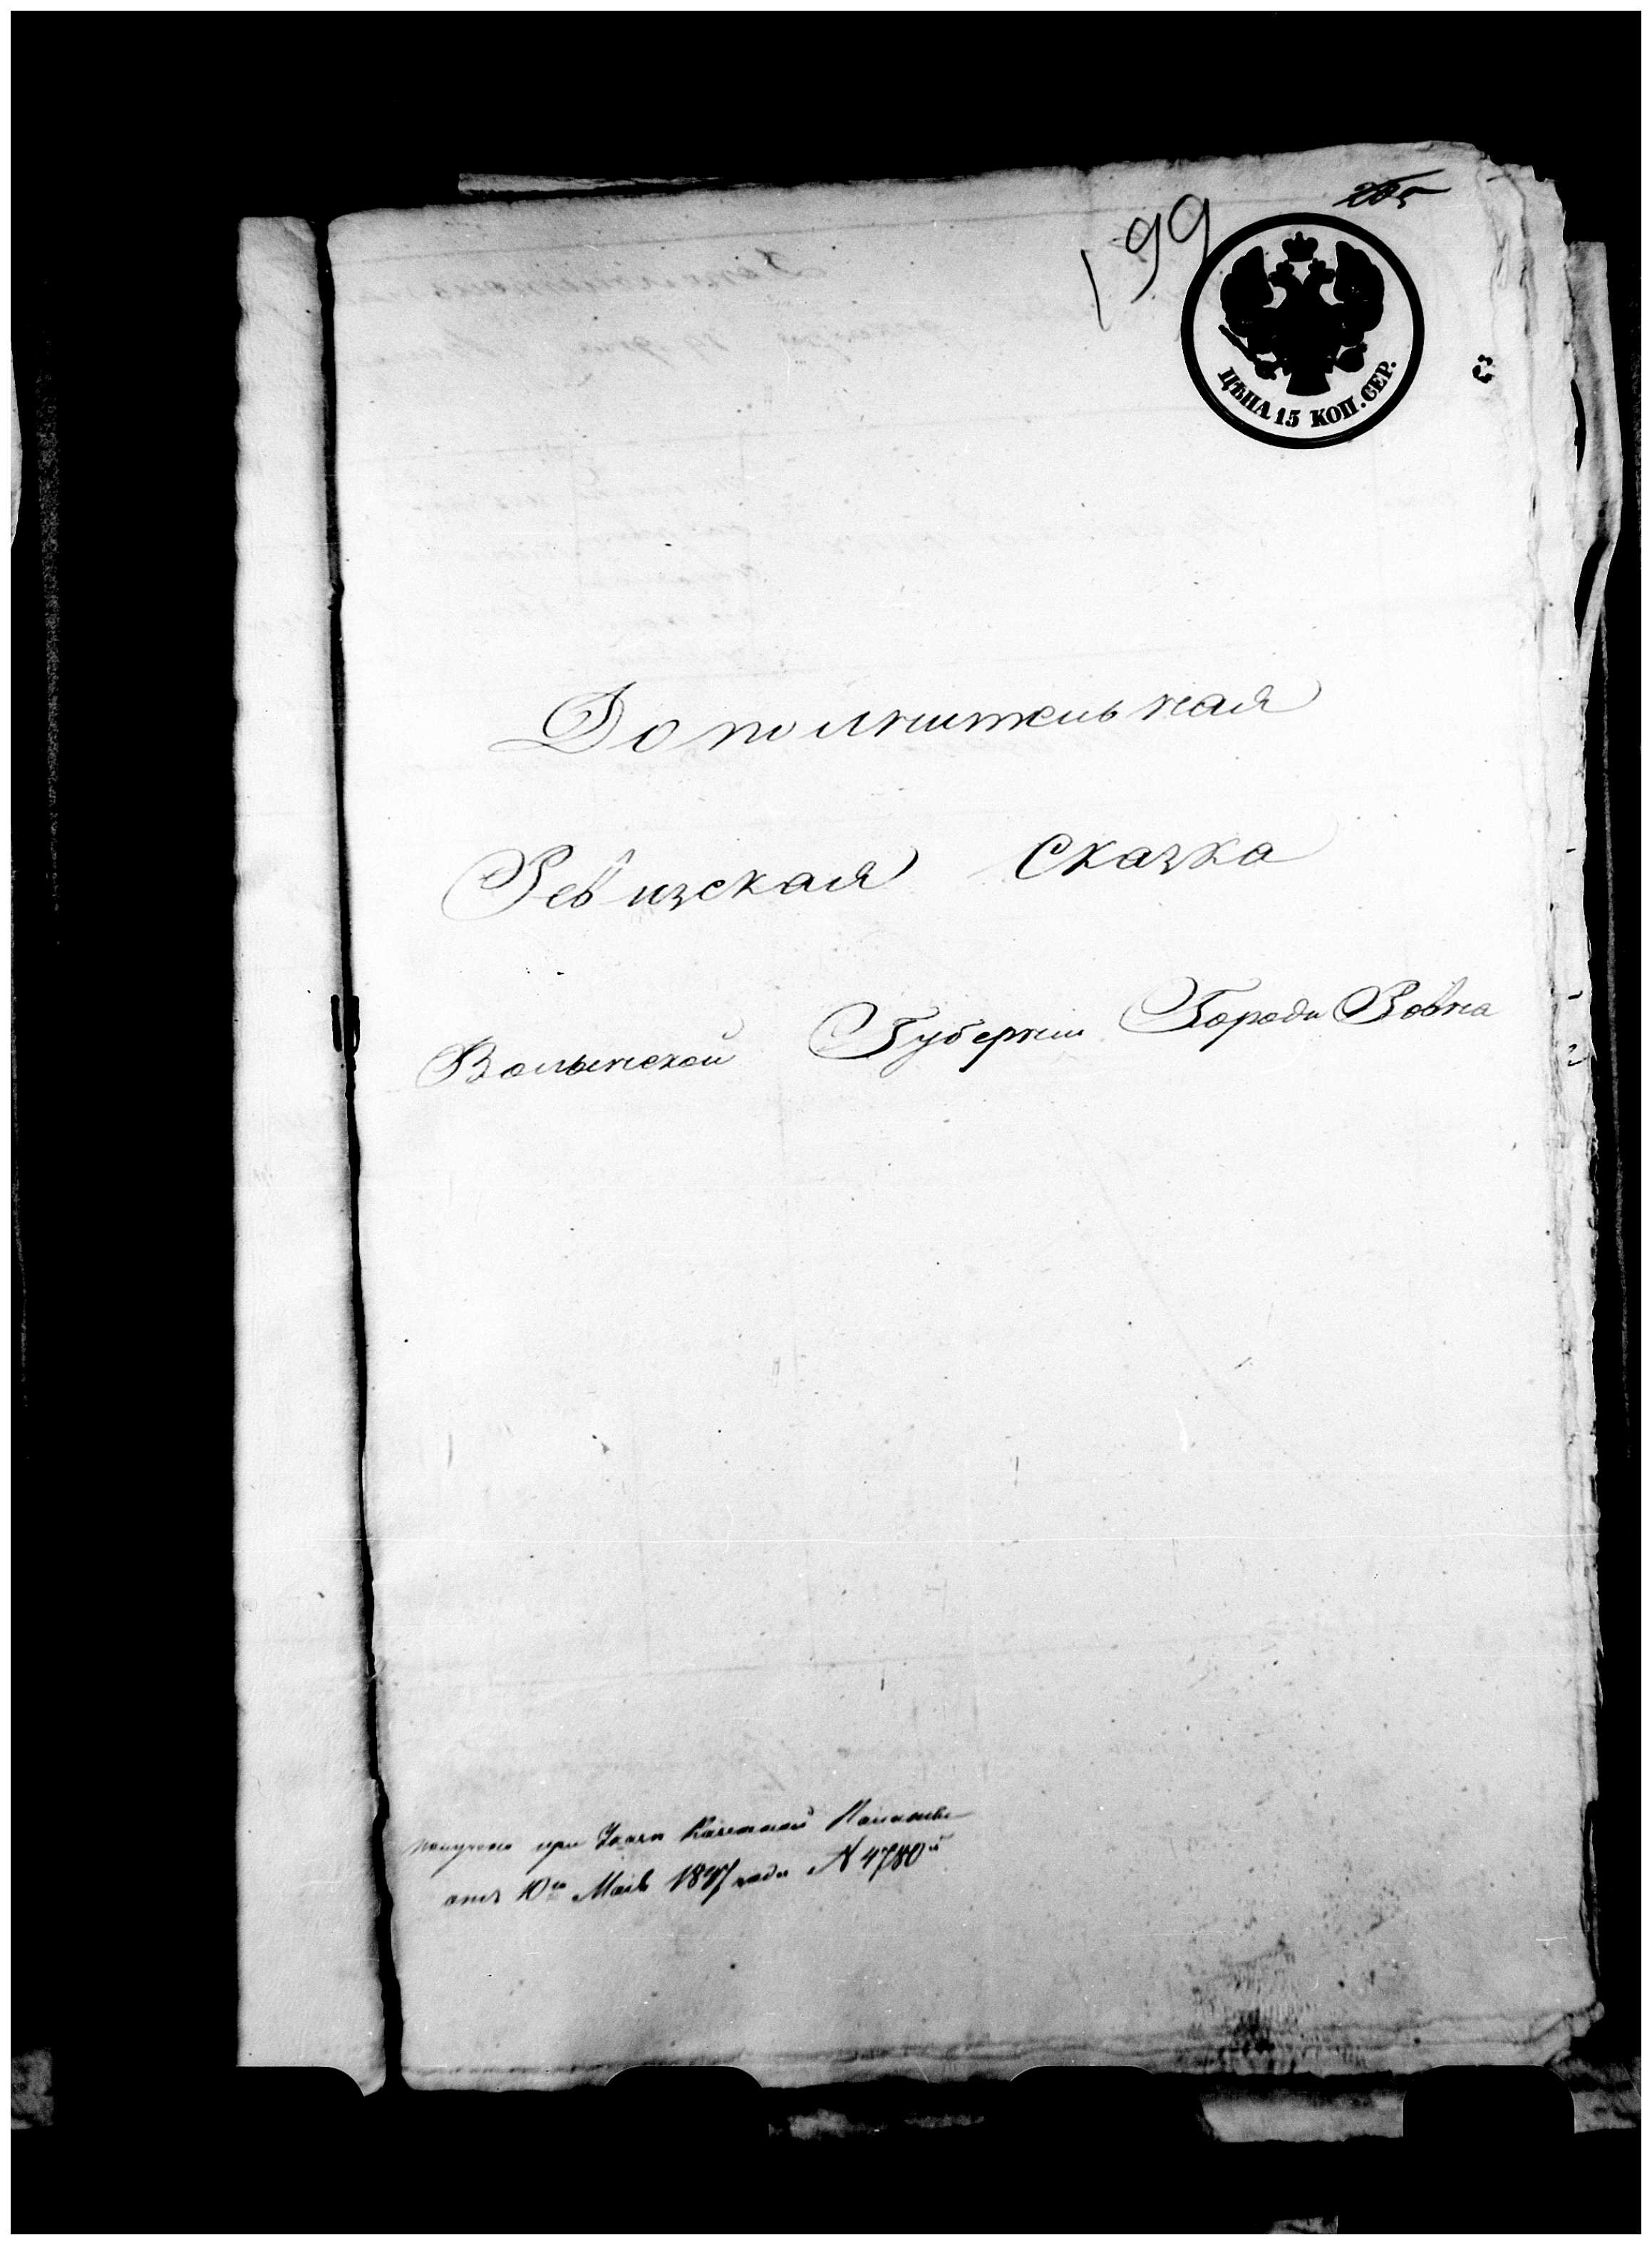 199
ЦѢНА 15 КОП. СЕР.
Дополнительная
Ревизская Сказка
Волынской Губернии Города Ровна
получено при Указѣ Казенной Палаты
отъ 10го Маія 1847 года № 4780й